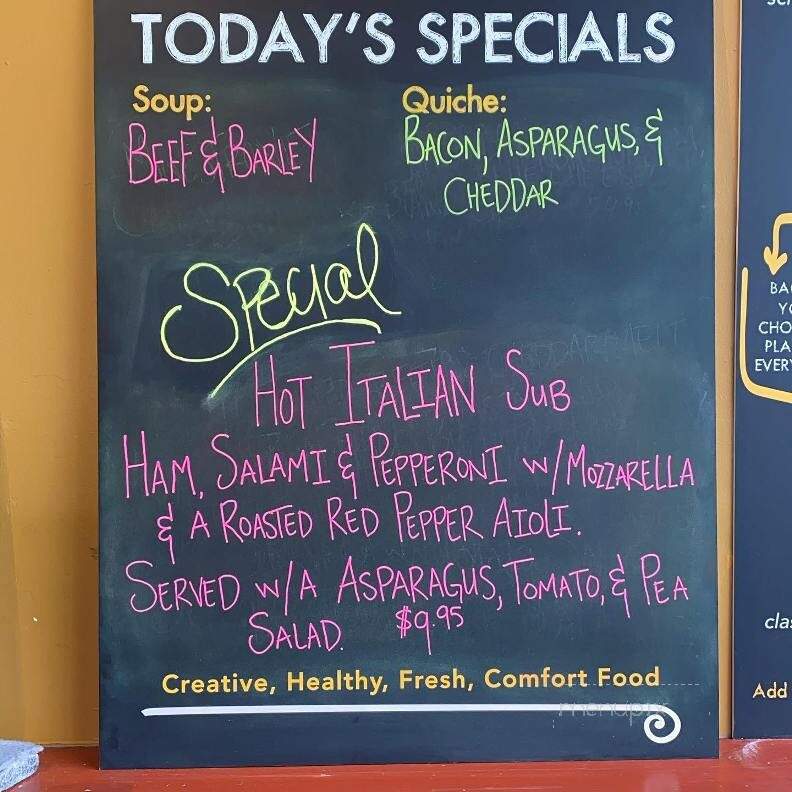 TODAY'S SPECIALS
Soup:
BEEF & BARLEY
Quiche:
BACON, ASPARAGUS, &
CHEDDAR
Special
HOT ITALIAN SUB
HAM, SALAMI & PEPPERONI W/MOZZARELLA
& A ROASTED RED PEPPER AIOLI.
SERVED W/A ASPARAGUS, TOMATO, & PEA
SALAD. $9.95
Creative, Healthy, Fresh, Comfort Food
BA
Y
CHO
PLA
EVER
cla
Add